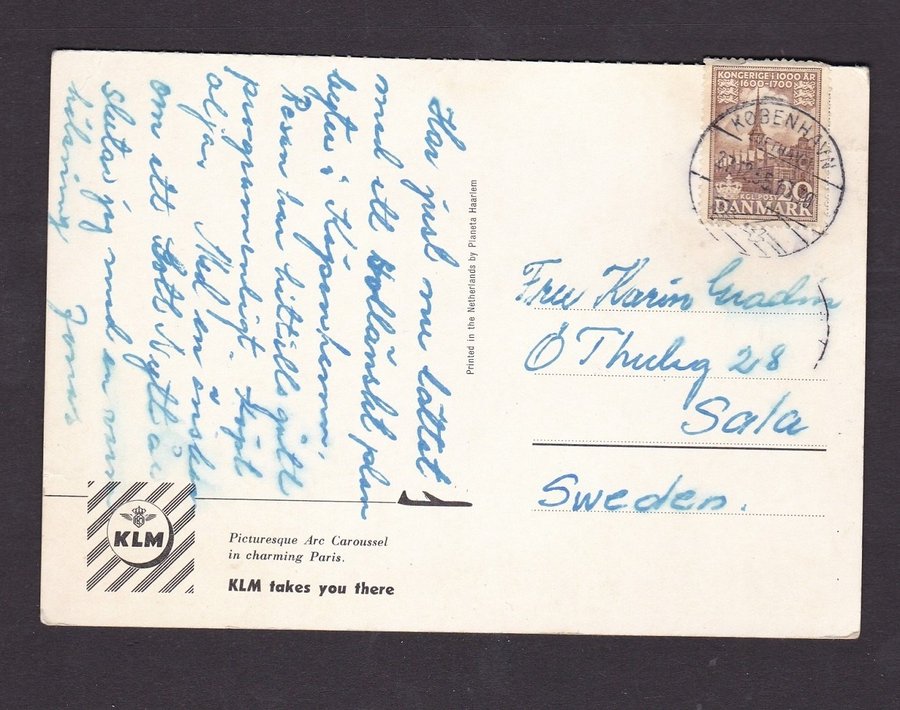 Har just nu lättat
med ett Holländskt plan
byter i Köpenhamn.
Resan har hittills gått
programenligt. Lyst
Med en önskan
om ett Gott Nytt år
slutar jag med en varm
hälsning
Jonas
Printed in the Netherlands by Planeta Haarlem
KONGERIGE I 1000 ÅR
1600-1700
KØBENHAVN
20
KGL. POST
DANMARK
Fru Karin
Ö 28
Sala
Sweden.
KLM
Picturesque Arc Caroussel
in charming Paris.
KLM takes you there